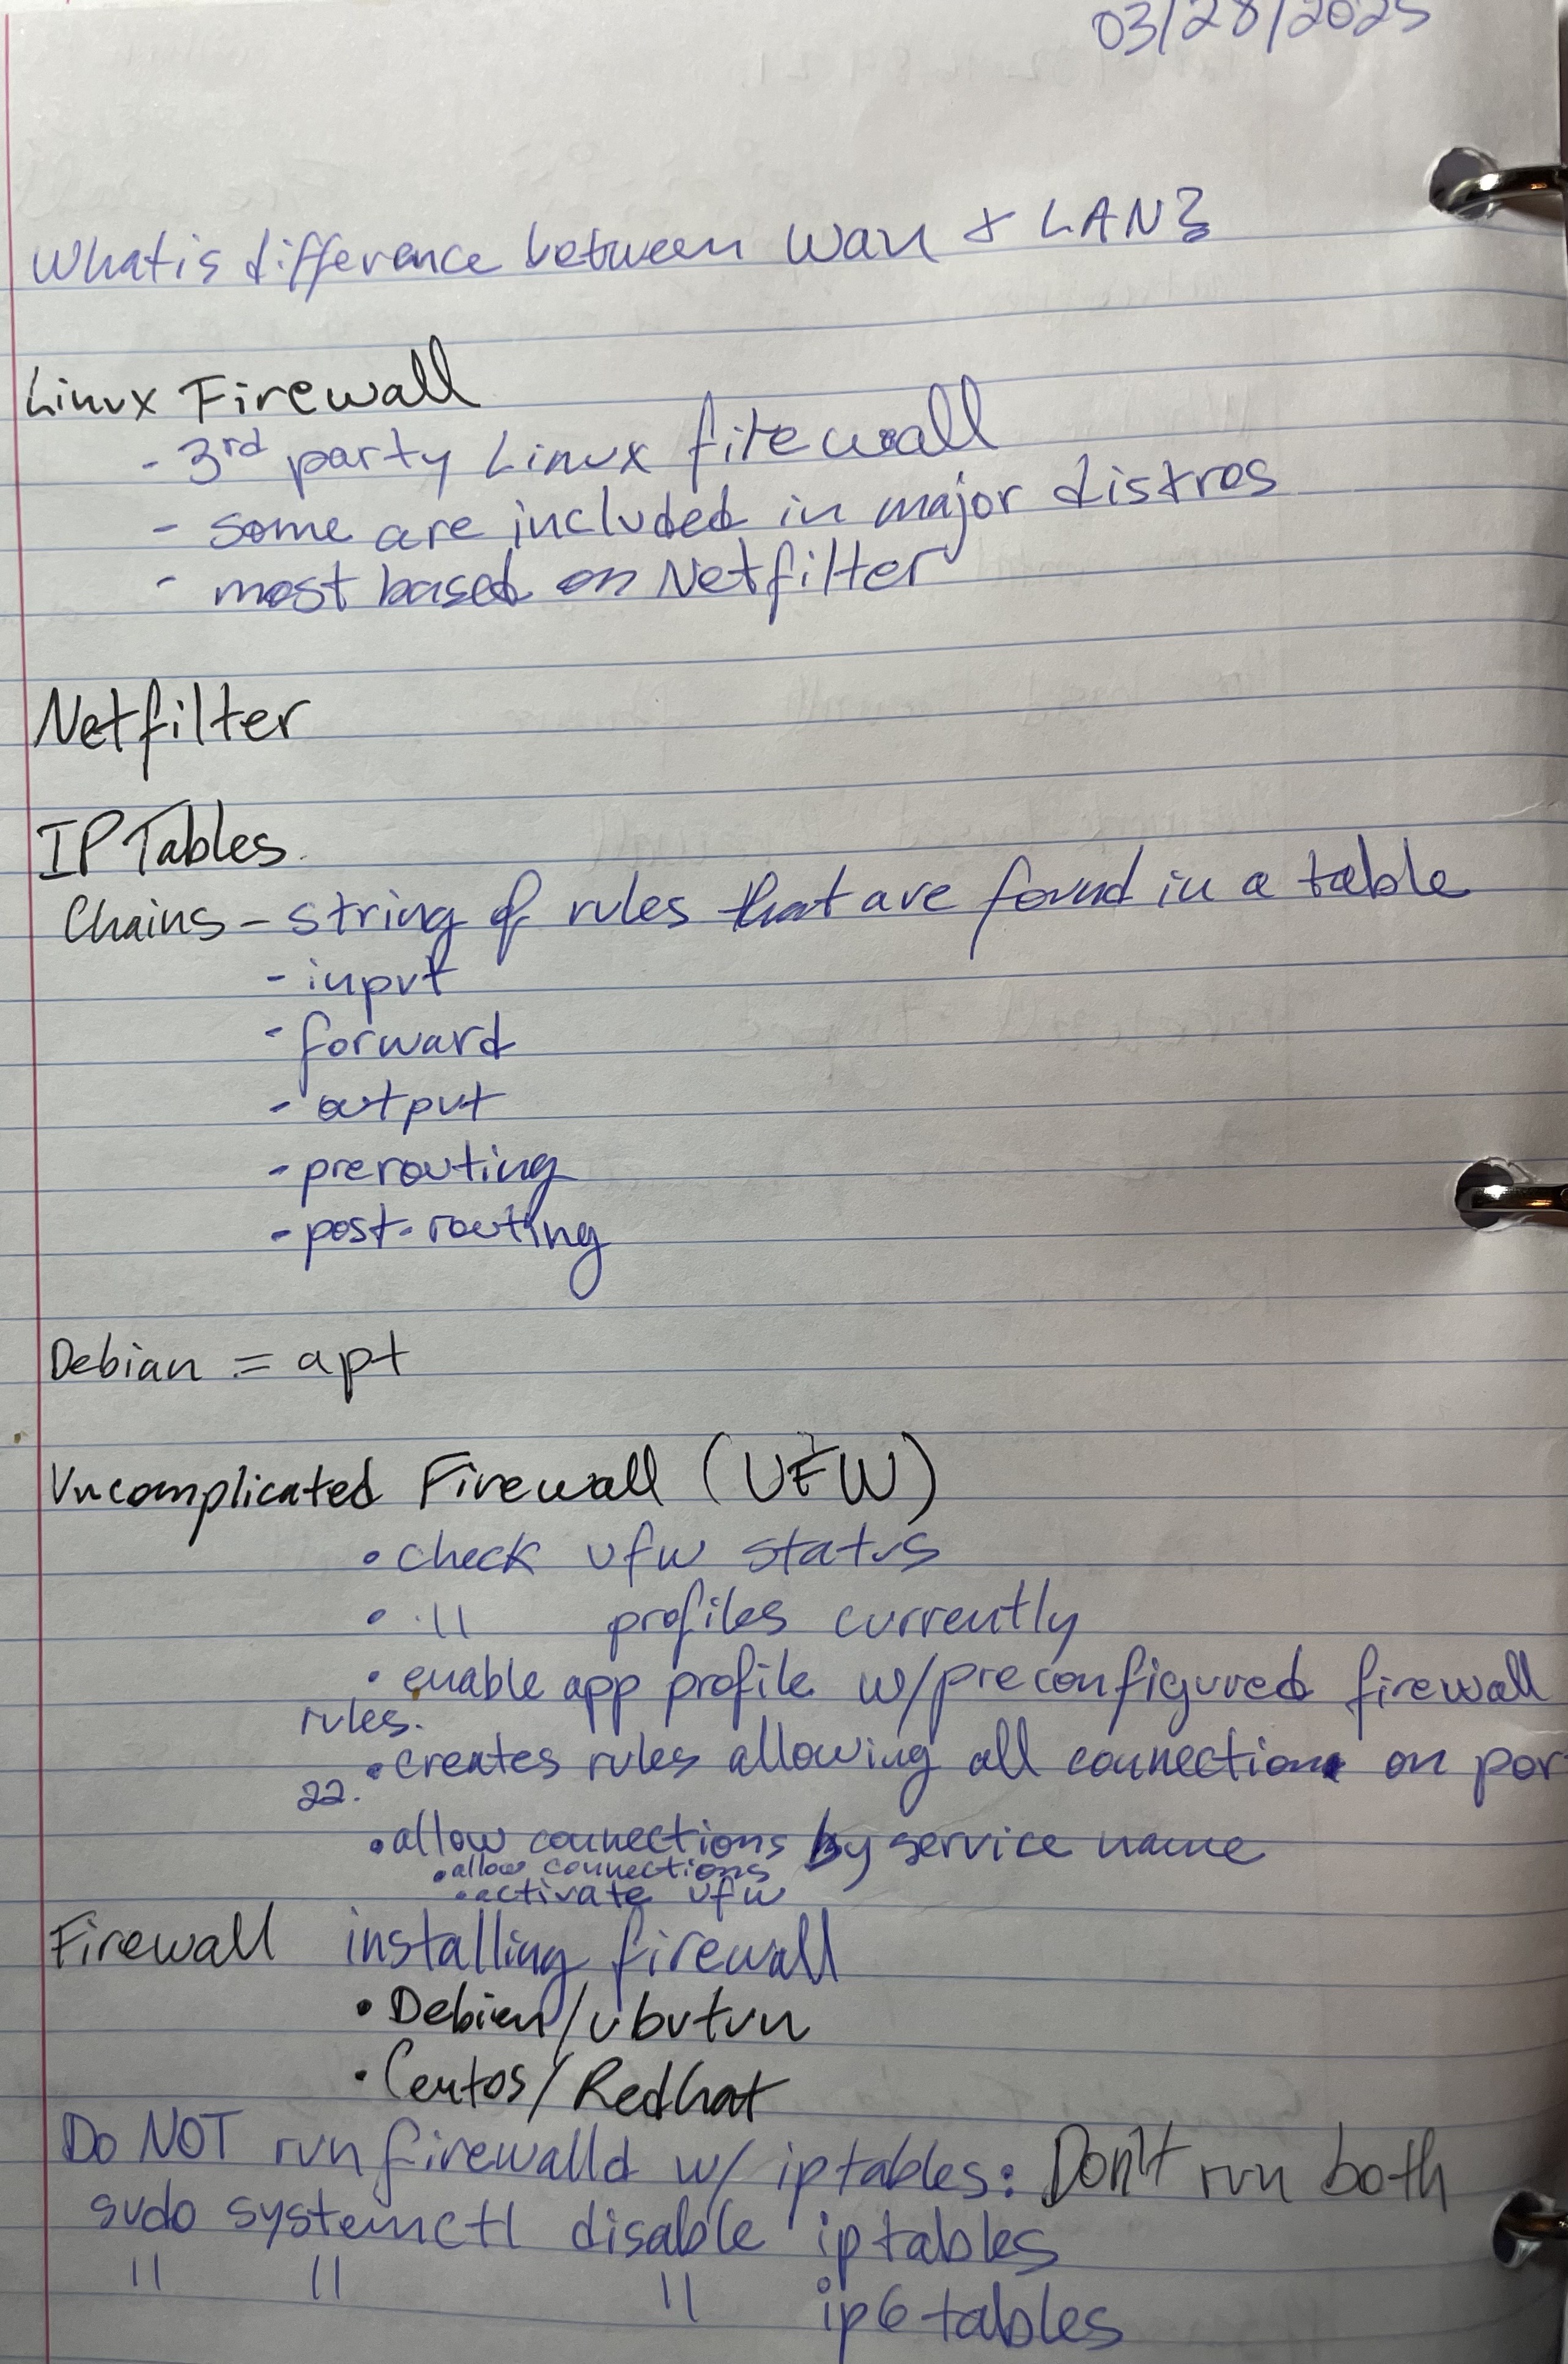 03/28/2025
What is difference between Wan & LAN?
Linux Firewall
- 3rd party Linux firewall
- some are included in major distros
- most based on Netfilter
Netfilter
IP Tables
Chains - string of rules that are found in a table
- input
- forward
- output
- prerouting
- post-routing
Debian = apt
Uncomplicated Firewall (UFW)
• check ufw status
• " profiles currently
• enable app profile w/preconfigured firewall
rules.
• creates rules allowing all connection on por
22.
• allow connections by service name
• allow connections
• activate ufw
Firewall installing firewall
• Debien/ubutun
• Centos/Redhat
Do NOT run firewalld w/ iptables: Don't run both
sudo systemctl disable iptables
" " " ip6tables